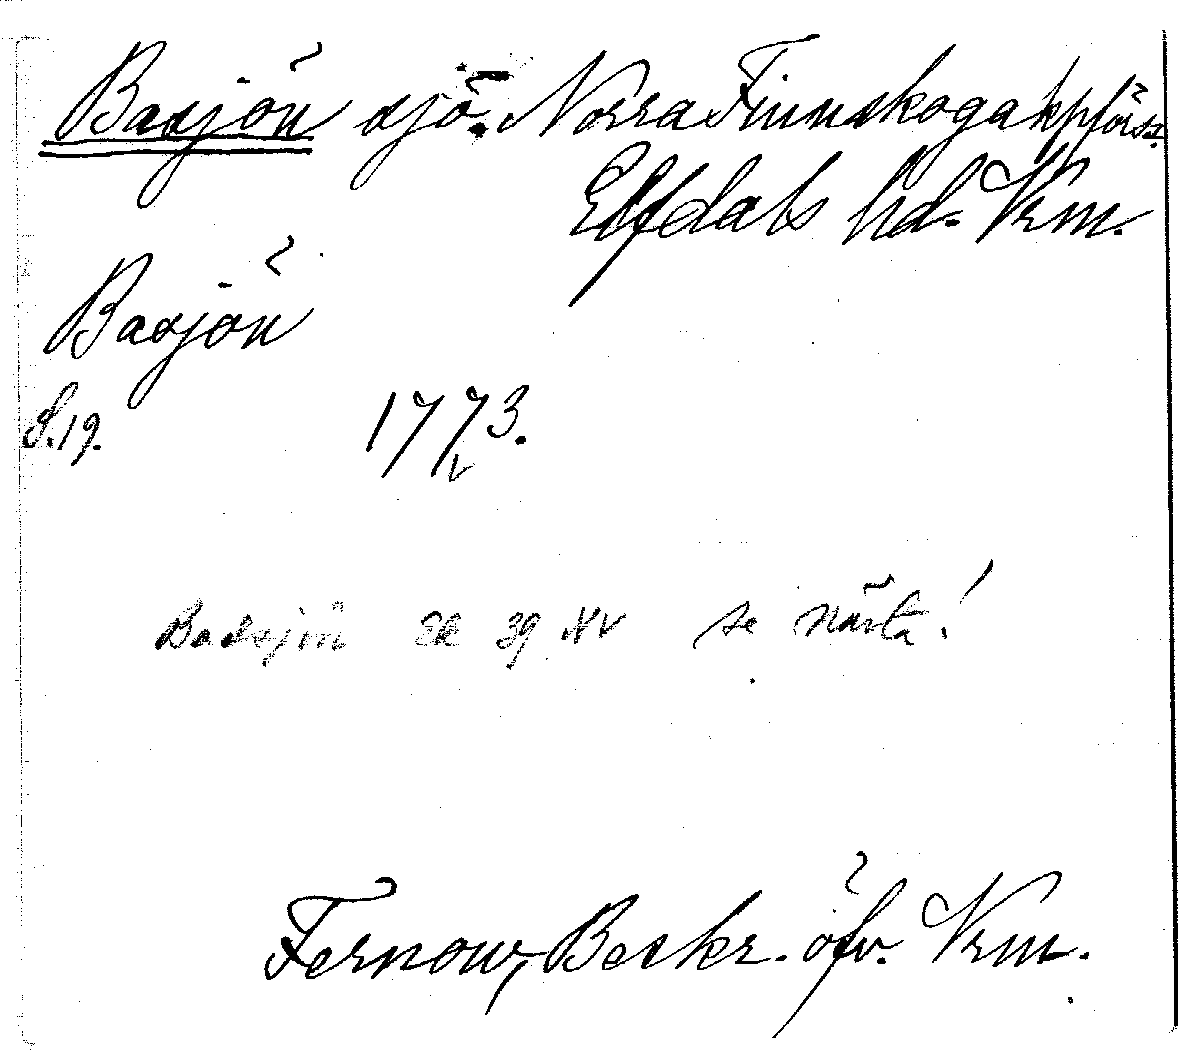 Basjön sjö. Norra Finnskoga kpförs.
Elfdals hd. Vrm.
Basjön
S.19. 1773.
Badsjön Ek 39 NV se nästa!
Fernow, Beskr. öfv. Vrm.